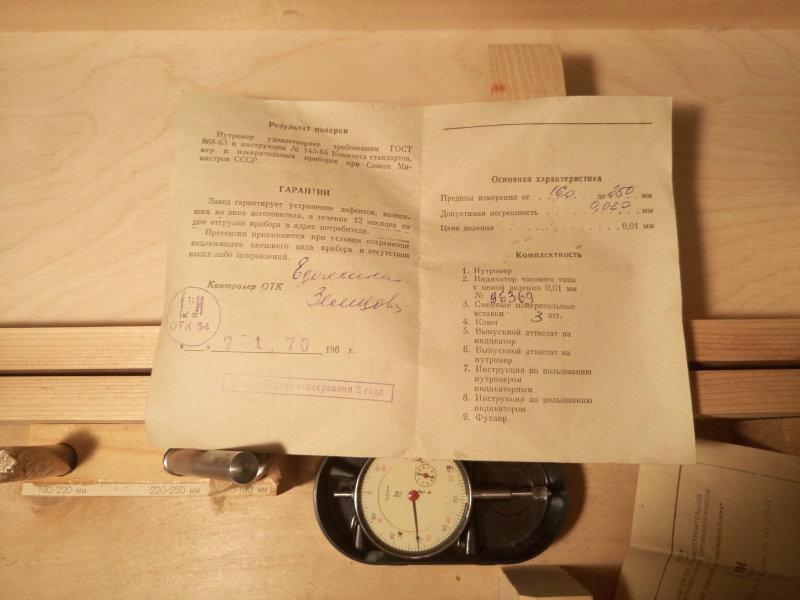 Результат поверки
Нутромер удовлетворяет требованиям ГОСТ
868-63 и инструкции № 145-64 Комитета стандартов,
мер и измерительных приборов при Совете Ми-
нистров СССР.
ГАРАНТИИ
Завод гарантирует устранение дефектов, возник-
ших по вине изготовителя, в течение 12 месяцев со
дня отгрузки прибора в адрес потребителя.
Претензии принимаются при условии сохранения
надлежащего внешнего вида прибора и отсутствии
каких-либо исправлений.
Контролер ОТК
ОТК 64
7 1. 70 196 г.
консервации 2 года
Основная характеристика
Пределы измерения от 160 до 250 мм
Допустимая погрешность мм
Цена деления 0,01 мм
Комплектность
1. Нутромер
2. Индикатор часового типа
с ценой деления 0,01 мм
№ 96369
3. Сменные измерительные
вставки 3 шт.
4. Ключ
5. Выпускной аттестат на
индикатор
6. Выпускной аттестат на
нутромер
7. Инструкция по пользованию
нутромером
индикаторным
8. Инструкция по пользованию
индикатором
9. Футляр
190-220 мм
220-250 мм
190 мм